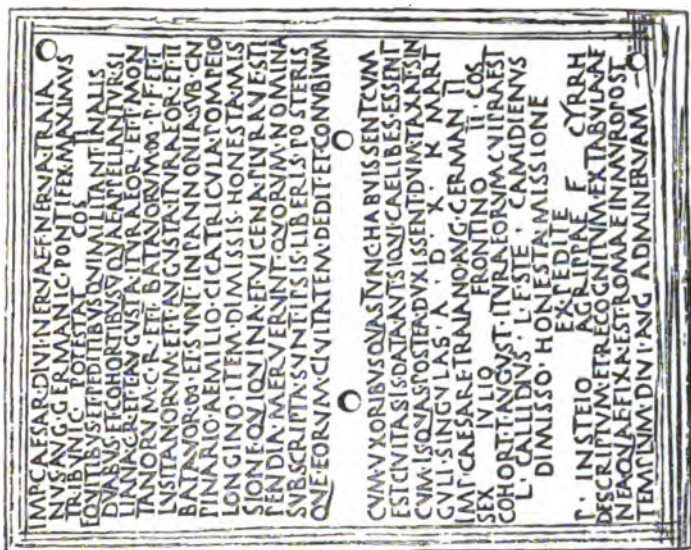 IMP·CAESAR·DIVI·NERVAE·F·NERVA·TRAIA
NVS·AVG·GERMANIC·PONTIFEX·MAXIMVS
TRIBVNIC · POTESTAT · COS · II
EQVITIBVS·ET·PEDITIBVS·QVI·MILITANT·IN·ALIS
DVABVS·ET·COHORTIBVS·V·QVAE·APPELLANTVR·SI
LIANA·C·R·ET·I·AVGVSTA·ITVRAEOR·ET·I·MON
TANORVM·C·R·ET·I·BATAVORVM·∞·P·F·ET·I
LVSITANORVM·ET·I·AVGVSTA·ITVRAEOR·ET·II
BATAVOR·∞·ET·SVNT·IN·PANNONIA·SVB·CN
PINARIO·AEMILIO·CICATRICVLA·POMPEIO
LONGINO·ITEM·DIMISSIS·HONESTA·MIS
SIONE·QVI·QVINA·ET·VICENA·PLVRAVE·STI
PENDIA·MERVERVNT·QVORVM·NOMINA
SVBSCRIPTA·SVNT·IPSIS·LIBERIS·POSTERIS
QVE·EORVM·CIVITATEM·DEDIT·ET·CONVBIVM
CVM·VXORIBVS·QVAS·TVNC·HABVISSENT·CVM
EST·CIVITAS·IIS·DATA·AVT·SIQVI·CAELIBES·ESSENT
CVM·IIS·QVAS·POSTEA·DVXISSENT·DVMTAXAT·SIN
GVLI·SINGVLAS · A · D · X · K · MART
IMP·CAESARE·TRAIANO·AVG·GERMAN · II
SEX · IVLIO · FRONTINO · II · COS
COHORT·I·AVGVST·ITVRAEORVM·CVI·PRAEST
L · CALLIDIVS · L·F·STE · CAMIDIENVS
DIMISSO·HONESTA·MISSIONE
EX PEDITE
P · INSTEIO AGRIPPAE F CYRRH
DESCRIPTVM·ET·RECOGNITVM·EX·TABVLA·AE
NEA·QVAE·FIXA·EST·ROMAE·IN·MVRO·POST
TEMPLVM·DIVI·AVG·AD·MINERVAM